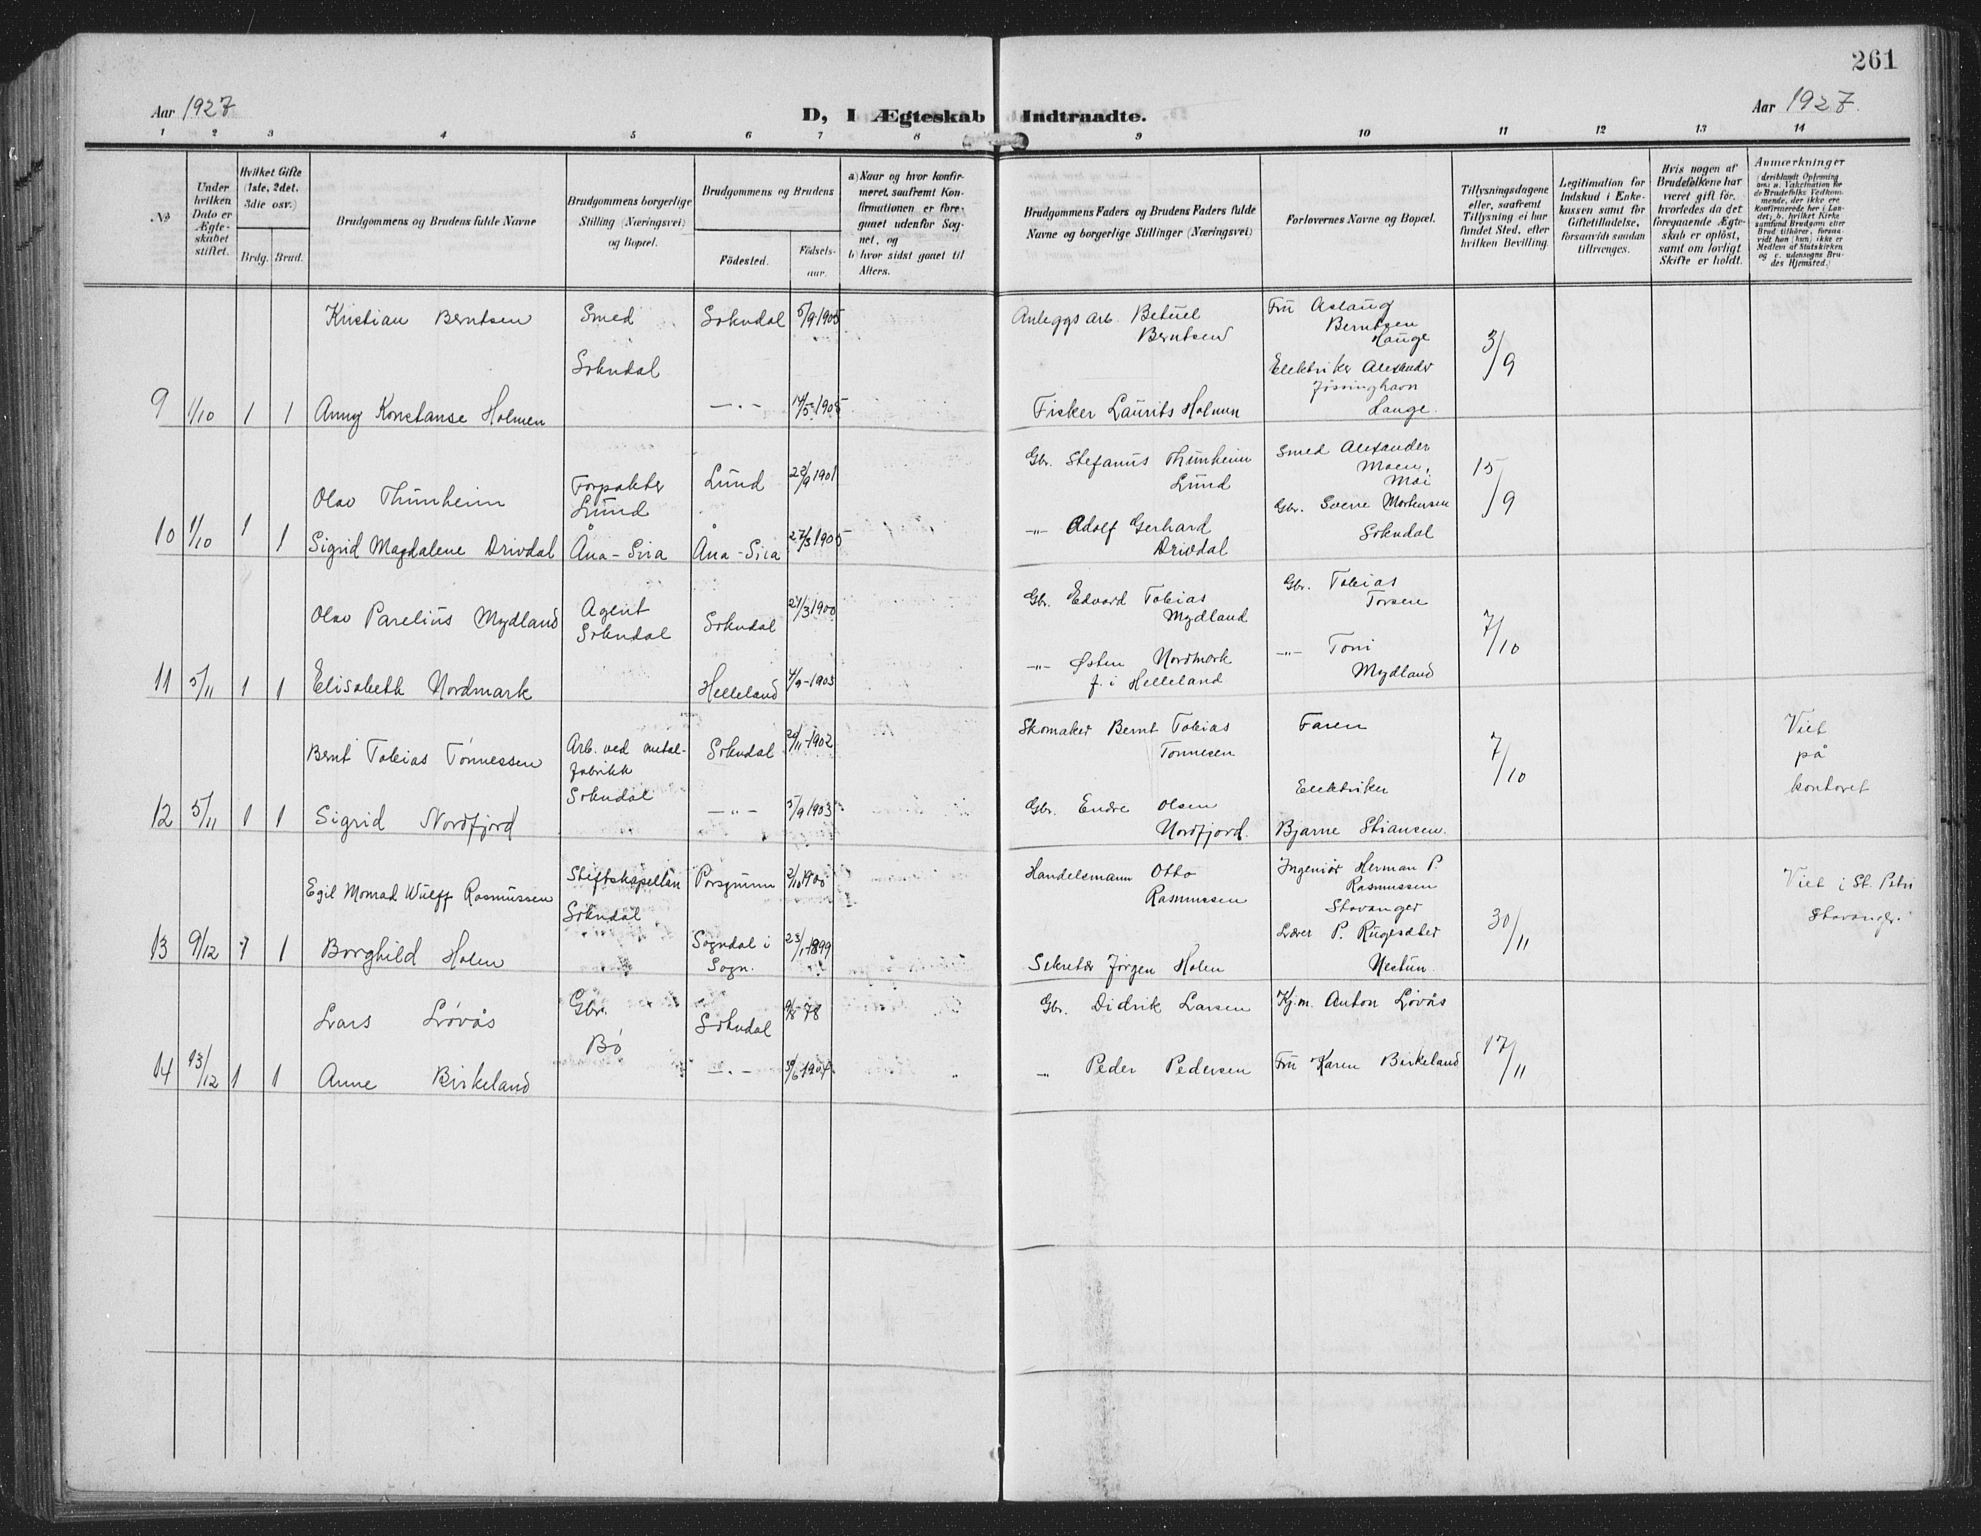 261
Aar 1927
D, I Ægteskab Indtraadte.
Aar 1927.
1 2 3 4 5 6 7 8 9 10 11 12 13 14
No
Under hvilken Dato er Ægteskabet stiftet.
Hvilket Gifte (1ste, 2det. 3die osv.)
Brdg. Brud.
Brudgommens og Brudens fulde Navne
Brudgommens borgerlige Stilling (Næringsvei) og Bopæl.
Brudgommens og Brudens
Fødested.
Fødsels-aar.
a) Naar og hvor konfirmeret, saafremt Konfirmationen er foregaaet udenfor Sognet, og
b) hvor sidst gaaet til Alters.
Brudgommens Faders og Brudens Faders fulde Navne og borgerlige Stillinger (Næringsvei)
Forlovernes Navne og Bopæl.
Tillysningsdagene eller, saafremt Tillysning ei har fundet Sted, efter hvilken Bevilling.
Legitimation for Indskud i Enkekassen samt for Giftetilladelse, forsaavidt saadan tiltrænges.
Hvis nogen af Brudefolkene har været gift før, hvorledes da det foregaaende Ægteskab er opløst, samt om lovligt Skifte er holdt.
Anmærkninger
(deriblandt Oplysning om: a. Vaksination for de Brudefolks Vedkommende, der ikke ere konfirmerede her i Landet; b. hvilket Kirkesamfund Brudgom eller Brud tilhører, forsaavidt han (hun) ikke er Medlem af Statskirken og c. udensogns Brudes Hjemsted.)
Kristian Berntsen Smed Sokndal 5/9 1905 Anleggs arb. Betuel Berntsen Fru Aslaug Berntsen Hauge 3/9
Sokndal Elektriker Alexander Jøssinghavn Hauge.
9 1/10 1 1 Anny Konstanse Holmen —.— 14/5 1905 Fisker Laurits Holmen
Olav Thunheim Forpakter Lund Lund 22/9 1901 Gbr. Stefanus Thunheim Lund Smed Alexander Moen, Moi 15/9
10 1/10 1 1 Sigrid Magdalene Drivdal Åna-Sira Åna-Sira 27/3 1905 —"— Adolf Gerhard Drivdal Gbr. Sverre Mortensen Sokndal
Olav Parelius Mydland Agent Sokndal Sokndal 24/3 1900 Gbr. Edvard Tobias Mydland Gbr. Tobias Torsen 7/10
11 5/11 1 1 Elisabeth Nordmark Helleland 4/9-1903 —"— Østen Nordmark f. i Helleland —"— Toni Mydland
Bernt Tobias Tønnessen Arb. ved metal-fabrikk Sokndal Sokndal 20/11-1902 Skomaker Bernt Tobias Tønnesen Faren 7/10 Viet på kontoret
12 5/11 1 1 Sigrid Nordfjord —"— 5/9 1903 Gbr. Endre Olsen Nordfjord. Elektriker Bjarne Stiansen.
Egil Monrad Wulff Rasmussen Stiftskapellan Sokndal Porsgrunn 2/10 1900 Handelsmann Otto Rasmussen Ingeniør Herman P. Rasmussen Stavanger 30/11 Viet i St. Petri Stavanger.
13 9/12 1 1 Borghild Holen Sogndal i Sogn. 23/1-1899 Sekretær Jørgen Holen Lærer P. Rugesæter Nestun.
Lars Løvås Gbr. Bø Sokndal 9/8-78 Gbr. Didrik Larsen Kjm. Anton Løvås 17/11
14 13/12 1 1 Anne Birkeland —.— 30/6-1904. " Peder Pedersen Fru Karen Birkeland